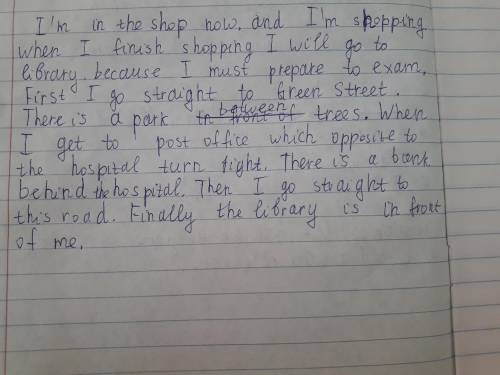 I'm in the shop now, and I'm shopping
when I finish shopping I will go to
library because I must prepare to exam.
First I go straight to Green Street.
There is a park in front of between trees. When
I get to post office which opposite to
the hospital turn tight. There is a bank
behind the hospital. Then I go straight to
this road. Finally the library is in front
of me.